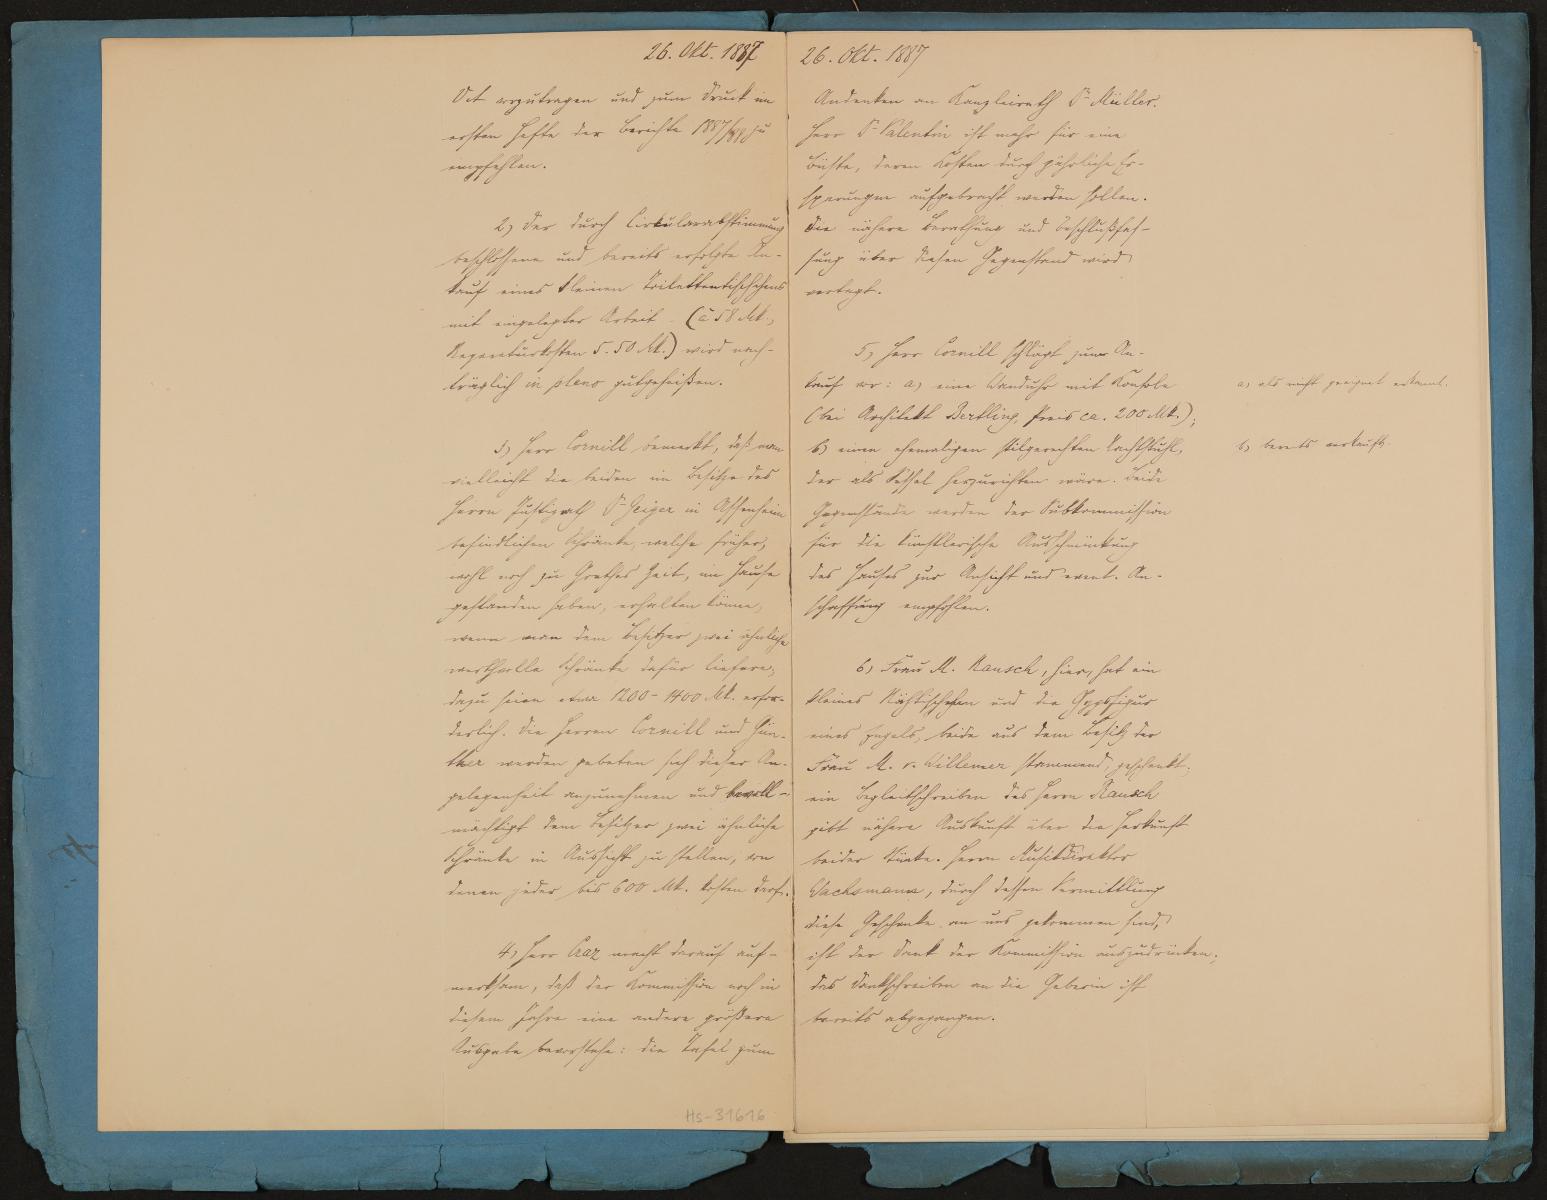 26. Okt. 1887
Ort vorzutragen und zum Druck im
ersten Hefte der Berichte 1887/88 zu
empfehlen.
2, Der durch Cirkularabstimmung
beschlossene und bereits erfolgte An-
kauf eines kleinen Toilettentischchens
mit eingelegter Arbeit (à 58 Mk.,
Reparaturkosten 5.50 Mk.) wird nach-
träglich in pleno gutgeheißen.
3, Herr Cornill bemerkt, daß man
vielleicht die beiden im Besitze des
Herrn Justizrath Dr Geiger in Assenheim
befindlichen Schränke, welche früher,
wohl noch zu Goethes Zeit, im Hause
gestanden haben, erhalten könne,
wenn man dem Besitzer zwei ähnliche
werthvolle Schränke dafür liefere;
dazu seien etwa 1200-1400 Mk. erfor-
derlich. Die Herren Cornill und Gün-
ther werden gebeten sich dieser An-
gelegenheit anzunehmen und bevoll-
mächtigt dem Besitzer zwei ähnliche
Schränke in Aussicht zu stellen, von
denen jeder bis 600 Mk. kosten darf.
4, Herr macht darauf auf-
merksam, daß der Kommission noch in
diesem Jahre eine andere größere
Ausgabe bevorstehe: die Tafel zum
Hs-31616
26. Okt. 1887
Andenken an Kanzleirath Dr Müller.
Herr Dr Valentin ist mehr für eine
Büste, deren Kosten durch jährliche Er-
sparungen aufgebracht werden sollen.
Die nähere Berathung und Beschlußfas-
sung über diesen Gegenstand wird
vertagt.
5, Herr Cornill schlägt zum An-
kauf vor: a, eine Wanduhr mit Konsole
(bei Architekt Bertling, Preis ca. 200 Mk.);
b, einen ehemaligen stilgerechten Nachtstuhl,
der als Sessel herzurichten wäre. Beide
Gegenstände werden der Subkommission
für die künstlerische Ausschmückung
des Hauses zur Ansicht und event. An-
schaffung empfohlen.
a, als nicht geeignet erkannt.
b, bereits verkauft.
6, Frau M. Rausch, hier, hat ein
kleines Nähtischchen und die Gypsfigur
eines Engels, beide aus dem Besitz der
Frau M. v. Willemer stammend, geschenkt;
ein Begleitschreiben des Herrn Rausch
gibt nähere Auskunft über die Herkunft
beider Stücke. Herrn Musikdirektor
Wachsmann, durch dessen Vermittlung
diese Geschenke an uns gekommen sind,
ist der Dank der Kommission auszudrücken;
das Dankschreiben an die Geberin ist
bereits abgegangen.